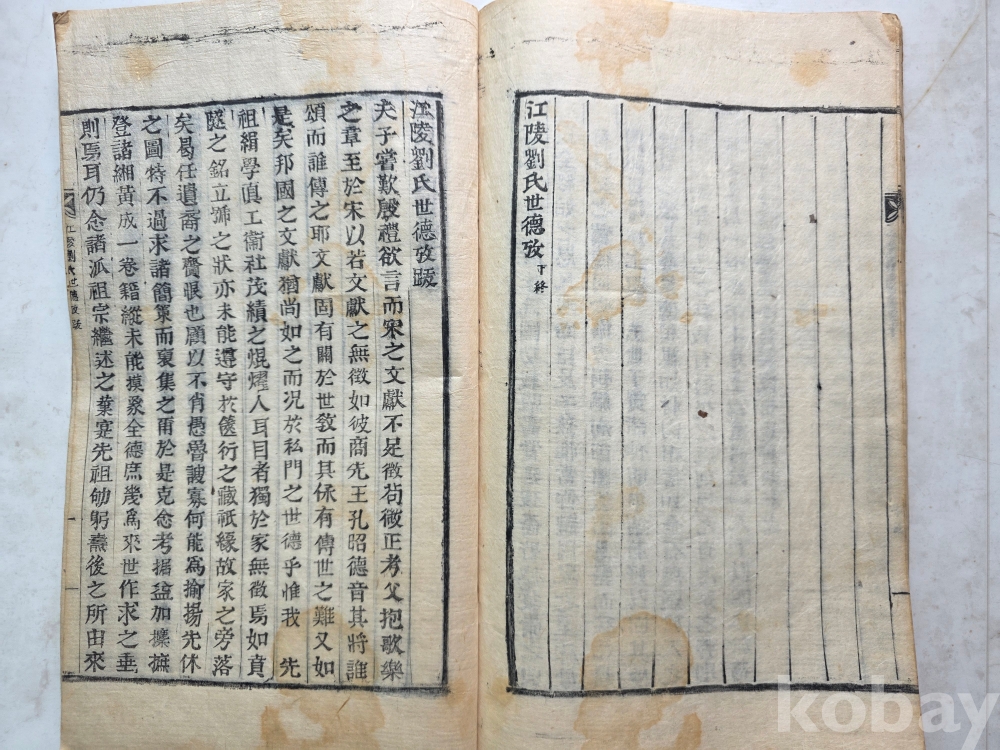 江陵劉氏世德攷 下終
江陵劉氏世德攷跋
夫子嘗歎殷禮欲言而宋之文獻不足徵苟微正考父抱歌樂
之章至於宋以若文獻之無徵如彼商先王孔昭德音其將誰
頌而誰傳之耶文獻固有關於世敎而其休有傳世之難又如
是矣邦國之文獻猶尚如之而況於私門之世德乎惟我 先
祖緝學眞工衞社茂績之焜燿人耳目者獨於家無徵焉如賁
隧之銘立號之狀亦未能遵守於篋衍之藏祇緣故家之旁落
矣曷任遺裔之齎恨也顧以不肖愚魯謏寡何能爲揄揚先休
之圖特不過求諸簡策而裒集之甭於是克念考据益加攈摭
登諸緗黃成一卷籍縱未能摸象全德庶幾爲來世作求之垂
則焉耳仍念諸派祖宗繼述之葉寔先祖劬躬燾後之所由來
江陵劉氏世德攷跋
kobay